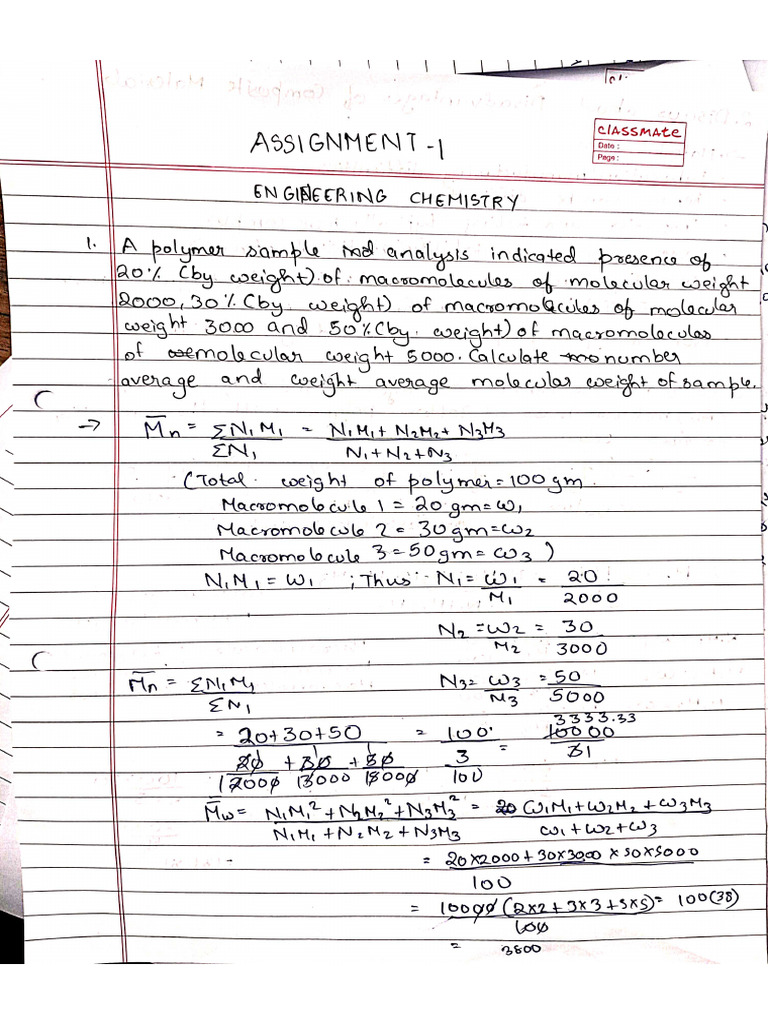 ASSIGNMENT-1
CLASSMATE
Date :
Page :
ENGINEERING CHEMISTRY
1. A polymer sample analysis indicated presence of
20% (by weight) of macromolecules of molecular weight
2000, 30% (by weight) of macromolecules of molecular
weight 3000 and 50% (by weight) of macromolecules
of molecular weight 5000. Calculate number
average and weight average molecular weight of sample.
→ M̄n = ΣN₁M₁ / ΣN₁ = N₁M₁ + N₂M₂ + N₃M₃ / N₁+N₂+N₃
(Total weight of polymer = 100 gm
Macromolecule 1 = 20 gm = ω₁
Macromolecule 2 = 30 gm = ω₂
Macromolecule 3 = 50 gm = ω₃)
N₁M₁ = ω₁ ; Thus N₁ = ω₁ / M₁ = 20 / 2000
N₂ = ω₂ / M₂ = 30 / 3000
M̄n = ΣN₁M₁ / ΣN₁ N₃ = ω₃ / M₃ = 50 / 5000
3333.33
= 20+30+50 / 20/2000 + 30/3000 + 50/5000 = 100 / 3/100 = 10000 / 31
M̄w = N₁M₁² + N₂M₂² + N₃M₃² / N₁M₁ + N₂M₂ + N₃M₃ = ω₁M₁+ω₂M₂+ω₃M₃ / ω₁+ω₂+ω₃
= 20×2000 + 30×3000 × 50×5000 / 100
= 10000 (2×2 + 3×3 + 5×5) / 100 = 100(38)
= 3800